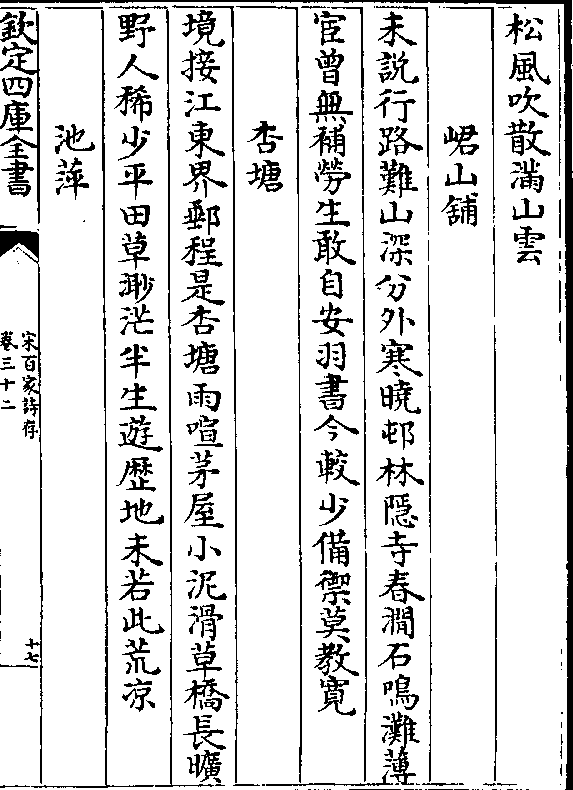 松風吹散滿山雲
峮山舖
未説行路難山深分外寒曉邨林隠寺春澗石鳴灘薄
宦曽無補勞生敢自安羽書今較少備禦莫教寛
杏塘
境接江東界郵程是杏塘雨喧茅屋小泥滑草橋長曠
野人稀少平田草渺茫半生遊歴地未若此荒凉
池萍
欽定四庫全書
宋百家詩存
卷三十二
十七